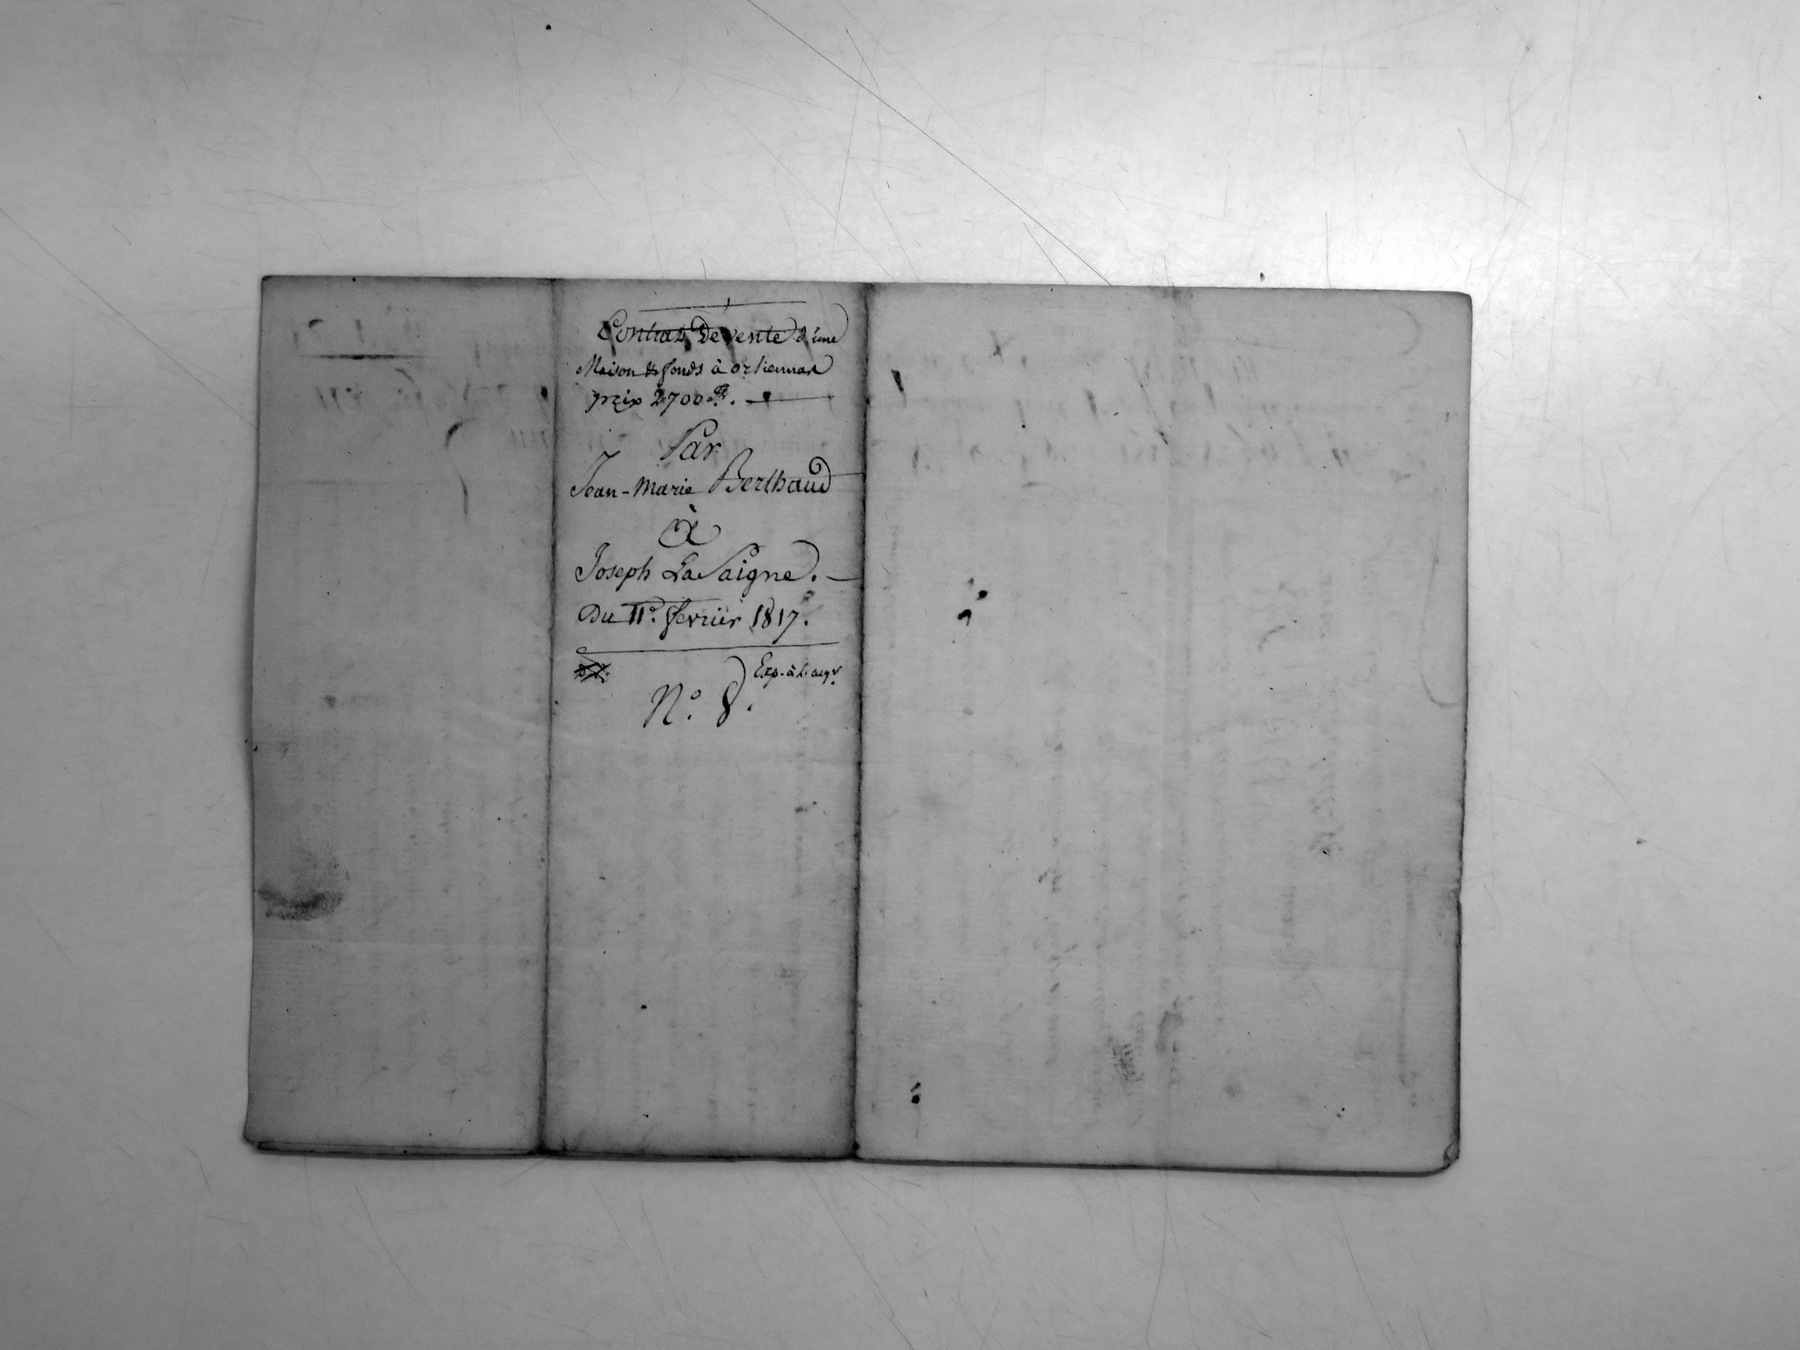 Contrat De vente d'une
Maison & fonds à orliennas
prix 2700 ff.
Par
Jean-Marie Berthaud
à
Joseph La Saigne.
Du 11e. fevrier 1817.
Exp. à l. aeqr.
N°. 8.